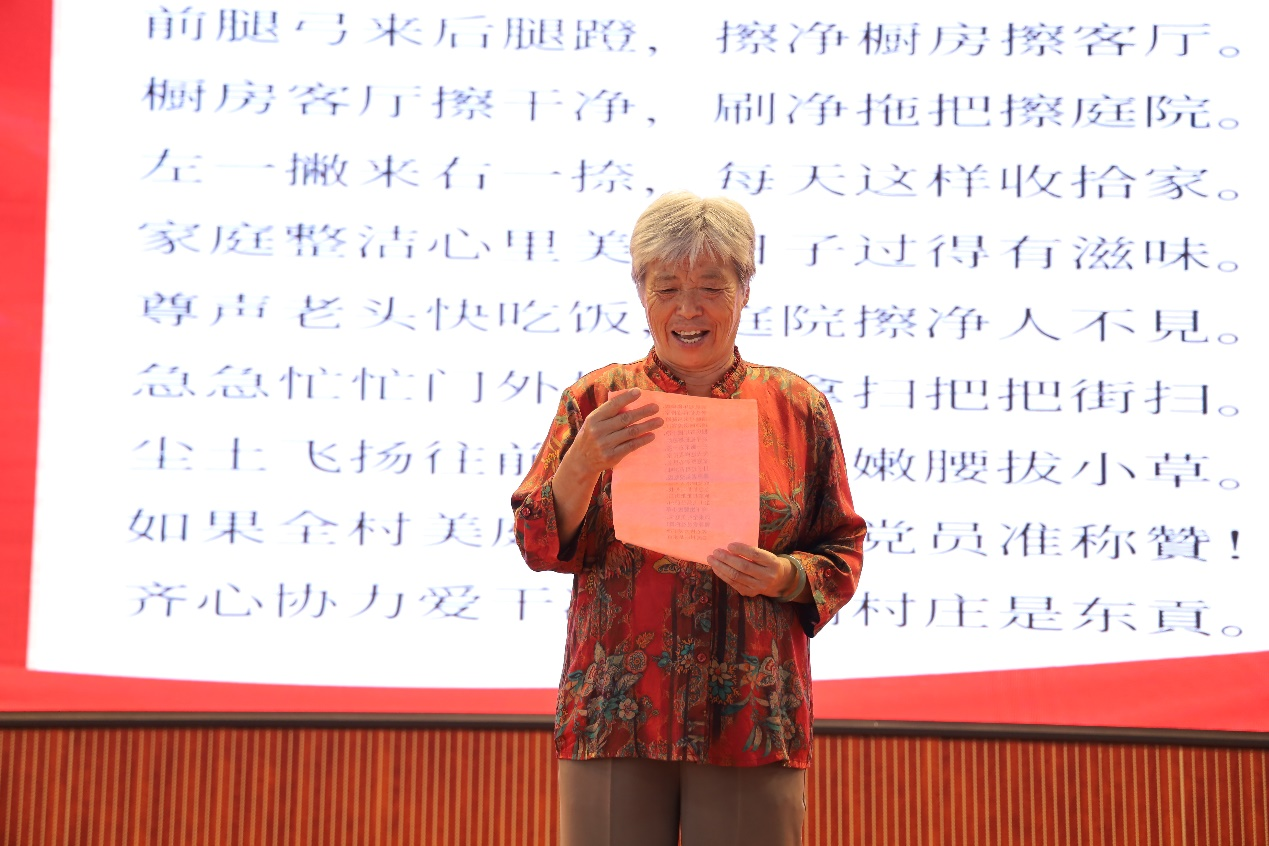 前腿弓来后腿蹬，擦净橱房擦客厅。
橱房客厅擦干净，刷净拖把擦庭院。
左一撇来右一捺，每天这样收拾家。
家庭整洁心里美 子过得有滋味。
尊声老头快吃饭，庭院擦净人不見。
急急忙忙门外 扫把把街扫。
尘土飞扬往前 嫩腰拔小草。
如果全村美 党员准称贊！
齐心协力爱干 村庄是东貢。